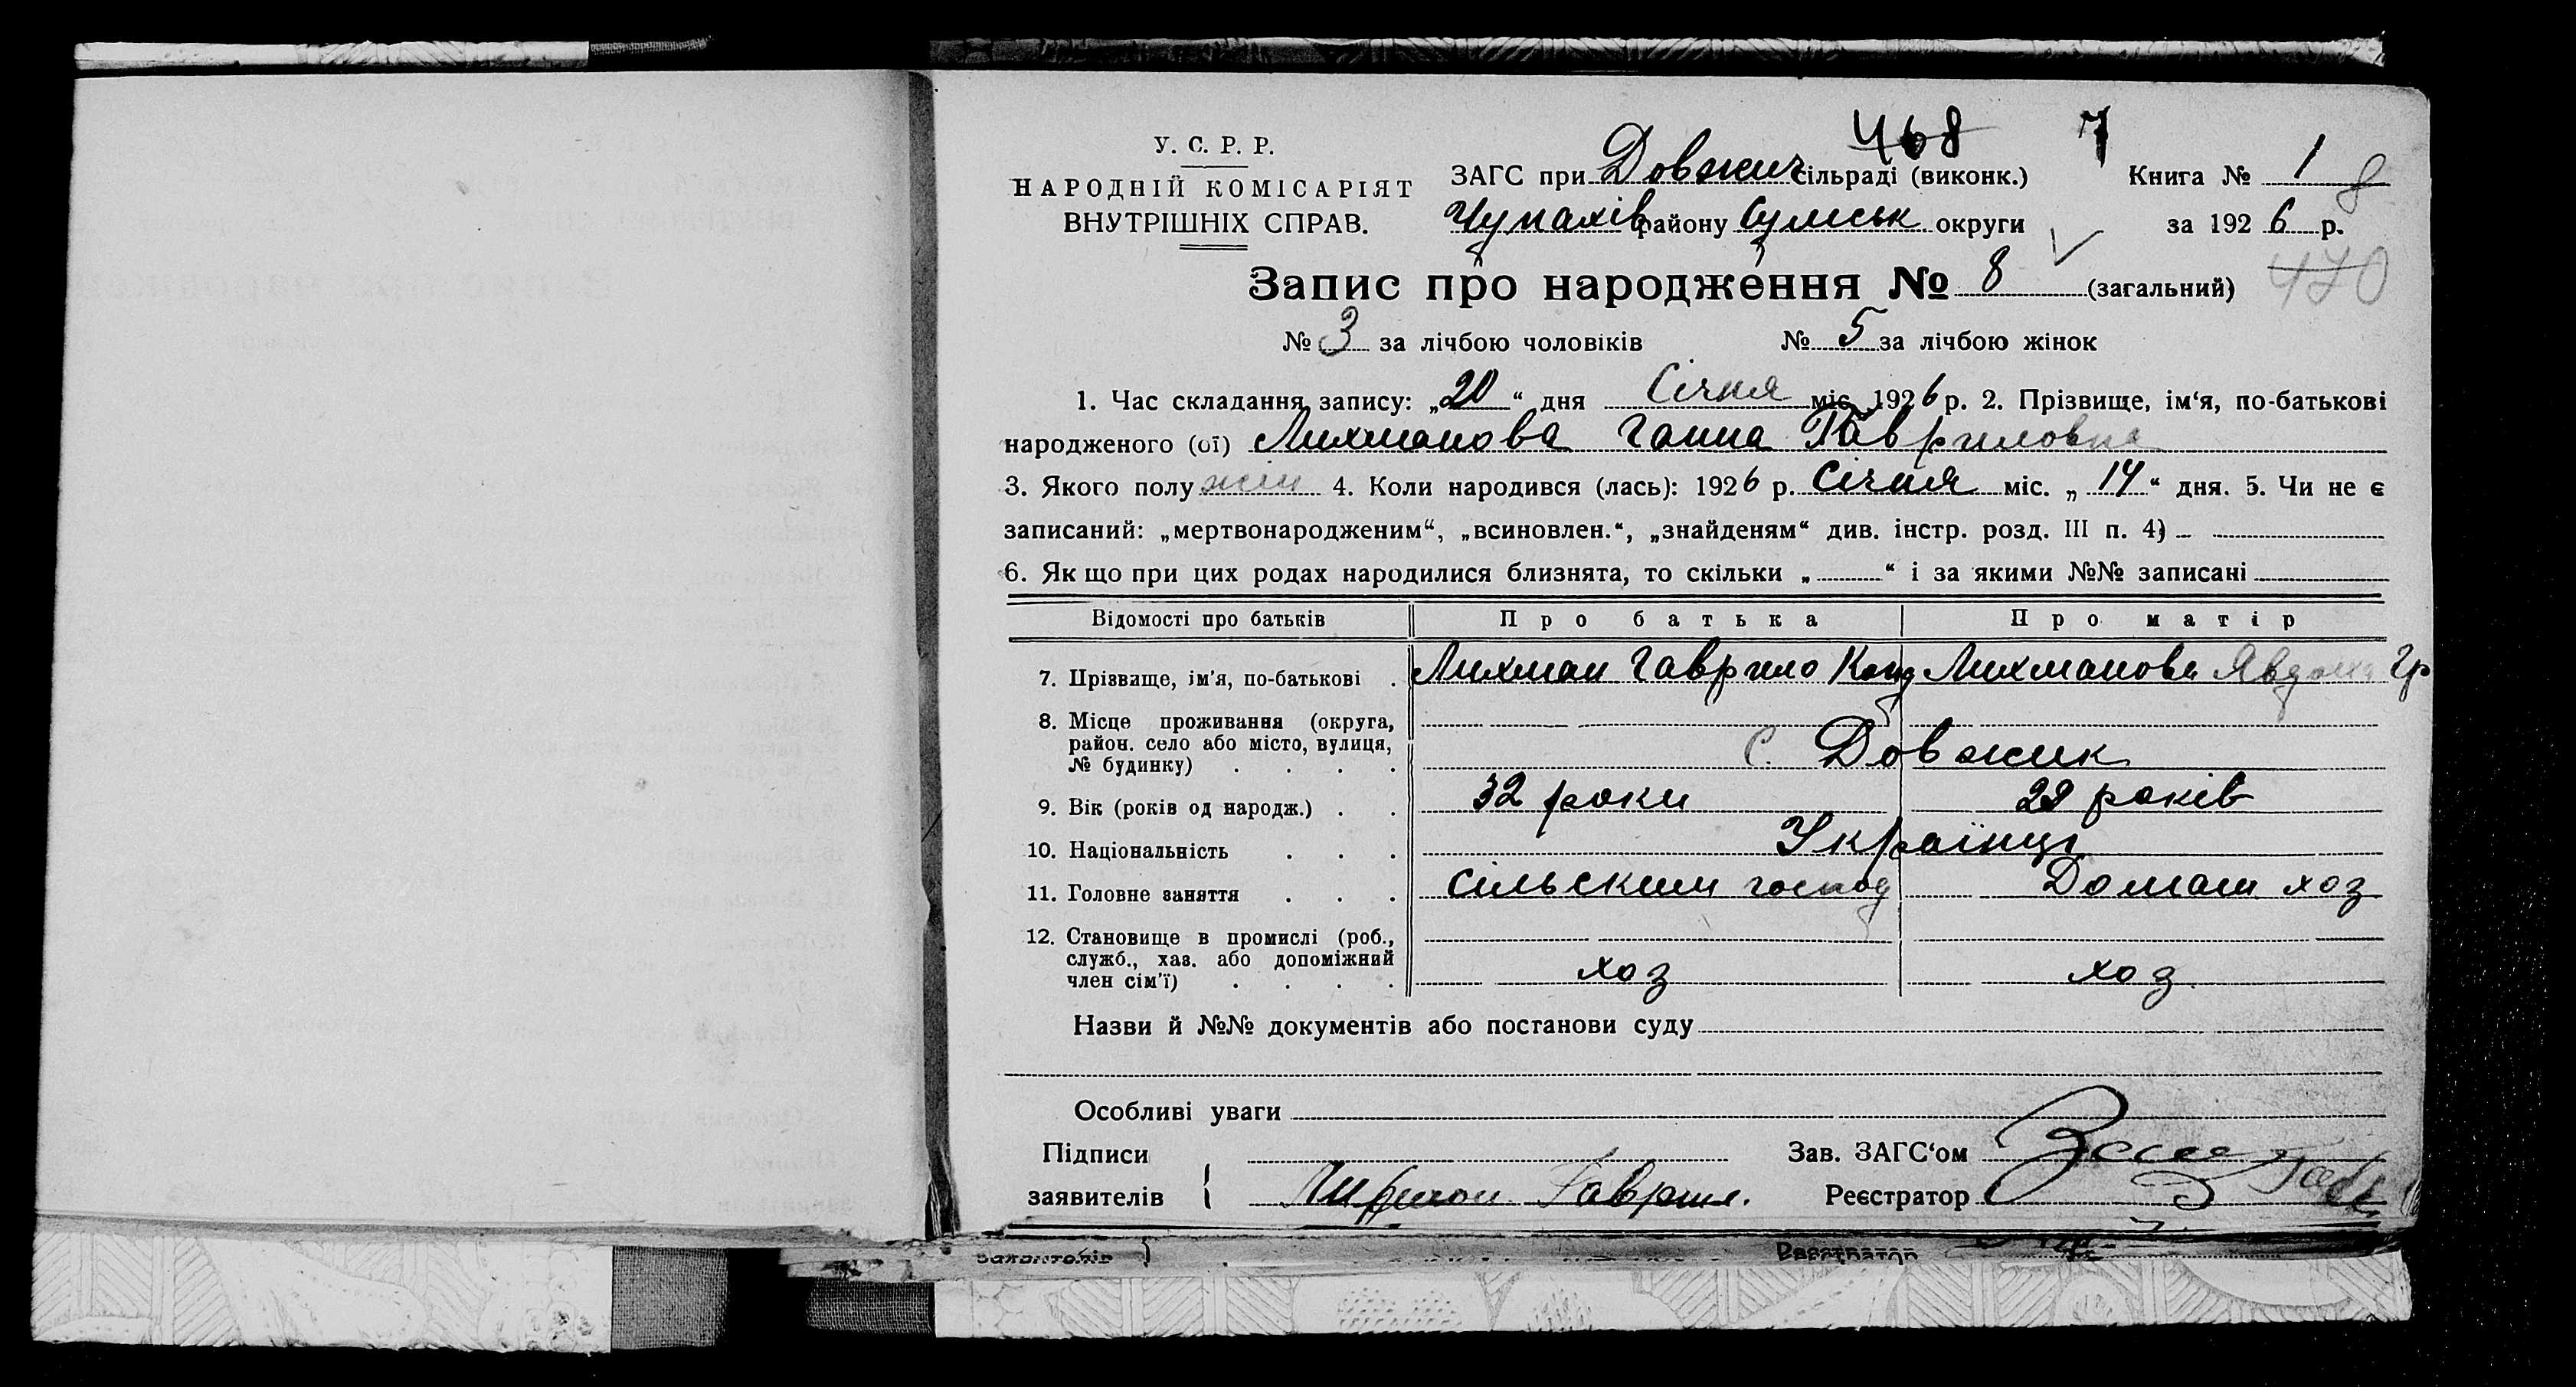 468 7
У. С. Р. Р.
НАРОДНІЙ КОМІСАРІЯТ
ВНУТРІШНІХ СПРАВ.
ЗАГС при Довжич сільраді (виконк.)
Чупахів району Сумськ округи
Книга № 1 8
за 1926 р.
Запис про народження № 8 (загальний) 470
№ 3 за лічбою чоловіків № 5 за лічбою жінок
1. Час складання запису: „20“ дня Січня міс. 1926 р. 2. Прізвище, ім‘я, по-батькові
народженого (ої) Лихманова Ганна Гавриловна
3. Якого полу жін 4. Коли народився (лась): 1926 р. Січня міс. „14“ дня. 5. Чи не є
записаний: „мертвонародженим“, „всиновлен.“, „знайденям“ див. інстр. розд. III п. 4)
6. Як що при цих родах народилися близнята, то скільки „ “ і за якими №№ записані
Відомості про батьків Про батька Про матір
7. Прізвище, ім'я, по-батькові Лихман Гаврило Конд Лихманова Явдоха Гр
8. Місце проживання (округа,
район. село або місто, вулиця,
№ будинку) с. Довжик
9. Вік (років од народж.) 32 роки 29 років
10. Національність Українці
11. Головне заняття сільским господ Домаш хоз
12. Становище в промислі (роб.,
служб., хаз. або допоміжний
член сім'ї) хоз хоз
Назви й №№ документів або постанови суду
Особливі уваги
Підписи Зав. ЗАГС‘ом
заявителів Лихман Гаврил. Реєстратор
заявителів Реєстратор